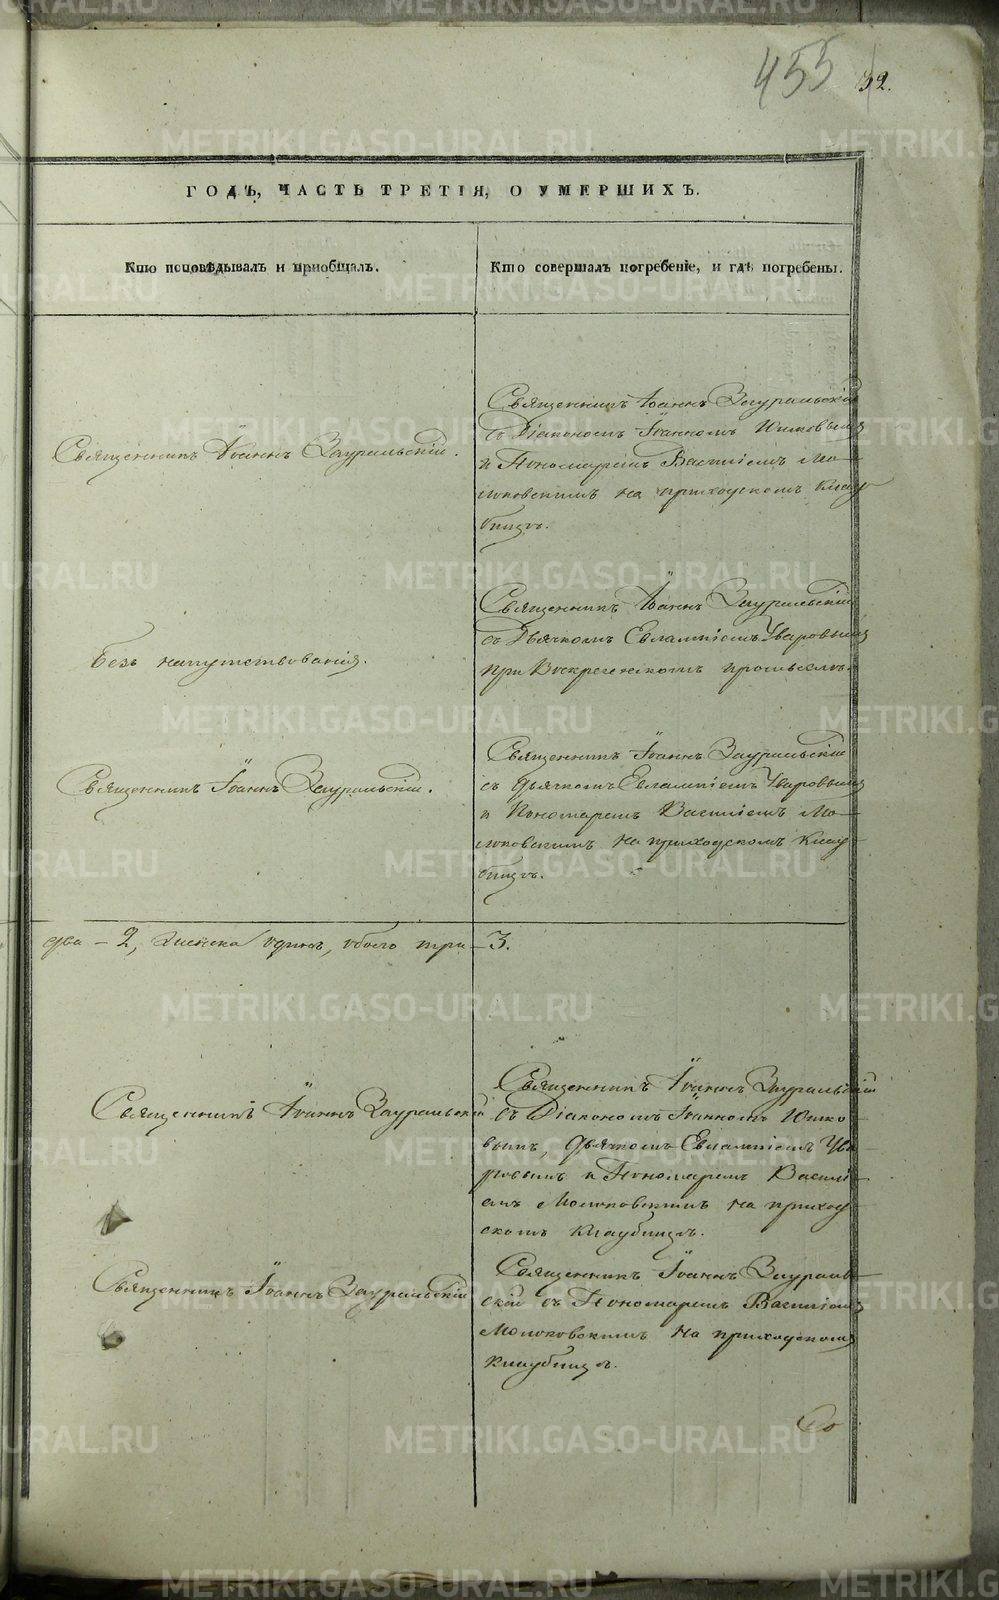 455 32.
ГОДЪ, ЧАСТЬ ТРЕТІЯ, О УМЕРШИХЪ.
Кто исповѣдывалъ и приобщалъ.
Кто совершалъ погребеніе, и гдѣ погребены.
Священникъ Іоаннъ Зауральскій.
Священникъ Іоаннъ Зауральскій
съ Діакономъ Іоанномъ
и Пономаремъ Василіемъ Мо-
локовскимъ на приходскомъ клад-
бищѣ.
Безъ напутствованія.
Священникъ Іоаннъ Зауральскій
съ Дьячкомъ Евлампіемъ Уваровымъ
при Воскресенскомъ промыслѣ.
Священникъ Іоаннъ Зауральскій.
Священникъ Іоаннъ Зауральскій
съ дьячкомъ Евлампіемъ Уваровымъ
и Пономаремъ Василіемъ Мо-
локовскимъ на приходскомъ клад-
бищѣ.
два – 2, женска одинъ, обоего три – 3.
Священникъ Іоаннъ Зауральскій
Священникъ Іоаннъ Зауральскій
съ Діакономъ Іоанномъ
вымъ, дьячкомъ Евлампіемъ Ува-
ровымъ и Пономаремъ Васили-
емъ Молоковскимъ на приход-
скомъ кладбищѣ.
Священникъ Іоаннъ Зауральскій
Священникъ Іоаннъ Заураль-
скій съ Пономаремъ Василіемъ
Молоковскимъ на приходскомъ
кладбищѣ.
METRIKI.GASO-URAL.RU